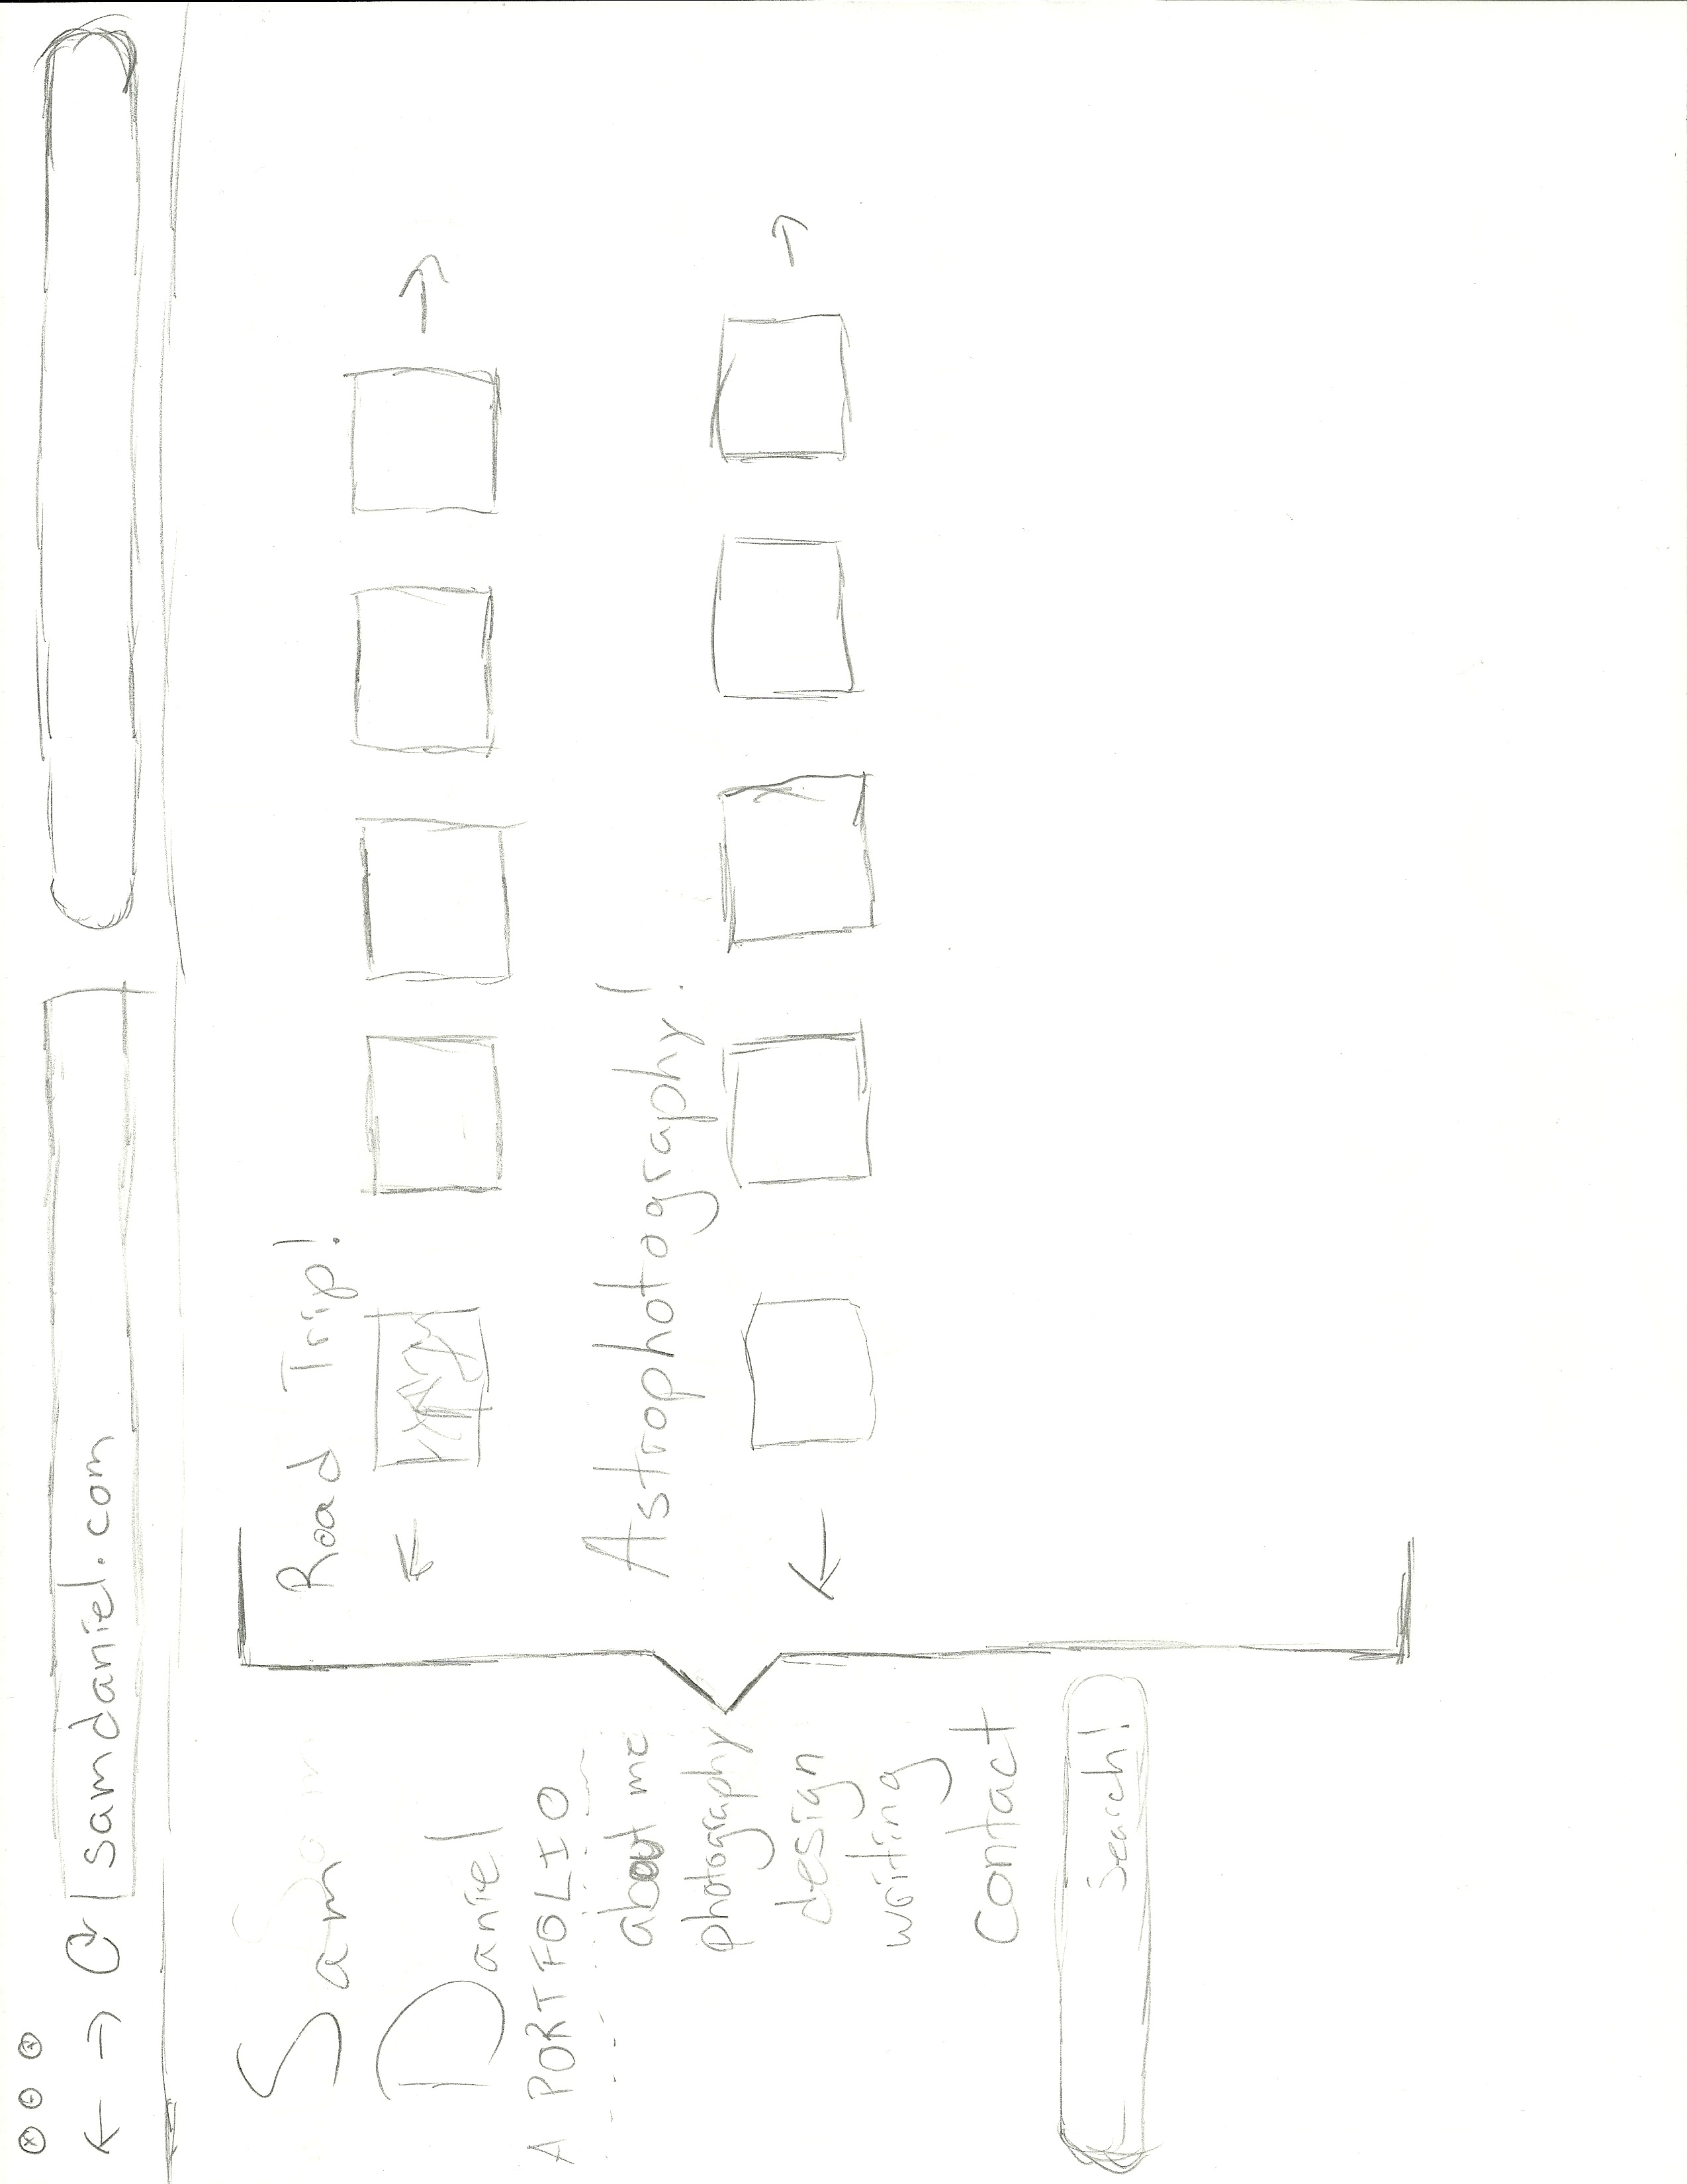 samdaniel.com
Sam
Daniel
A PORTFOLIO
about me
photography
design
writing
Contact
Search!
Road Trip!
Astrophotography!